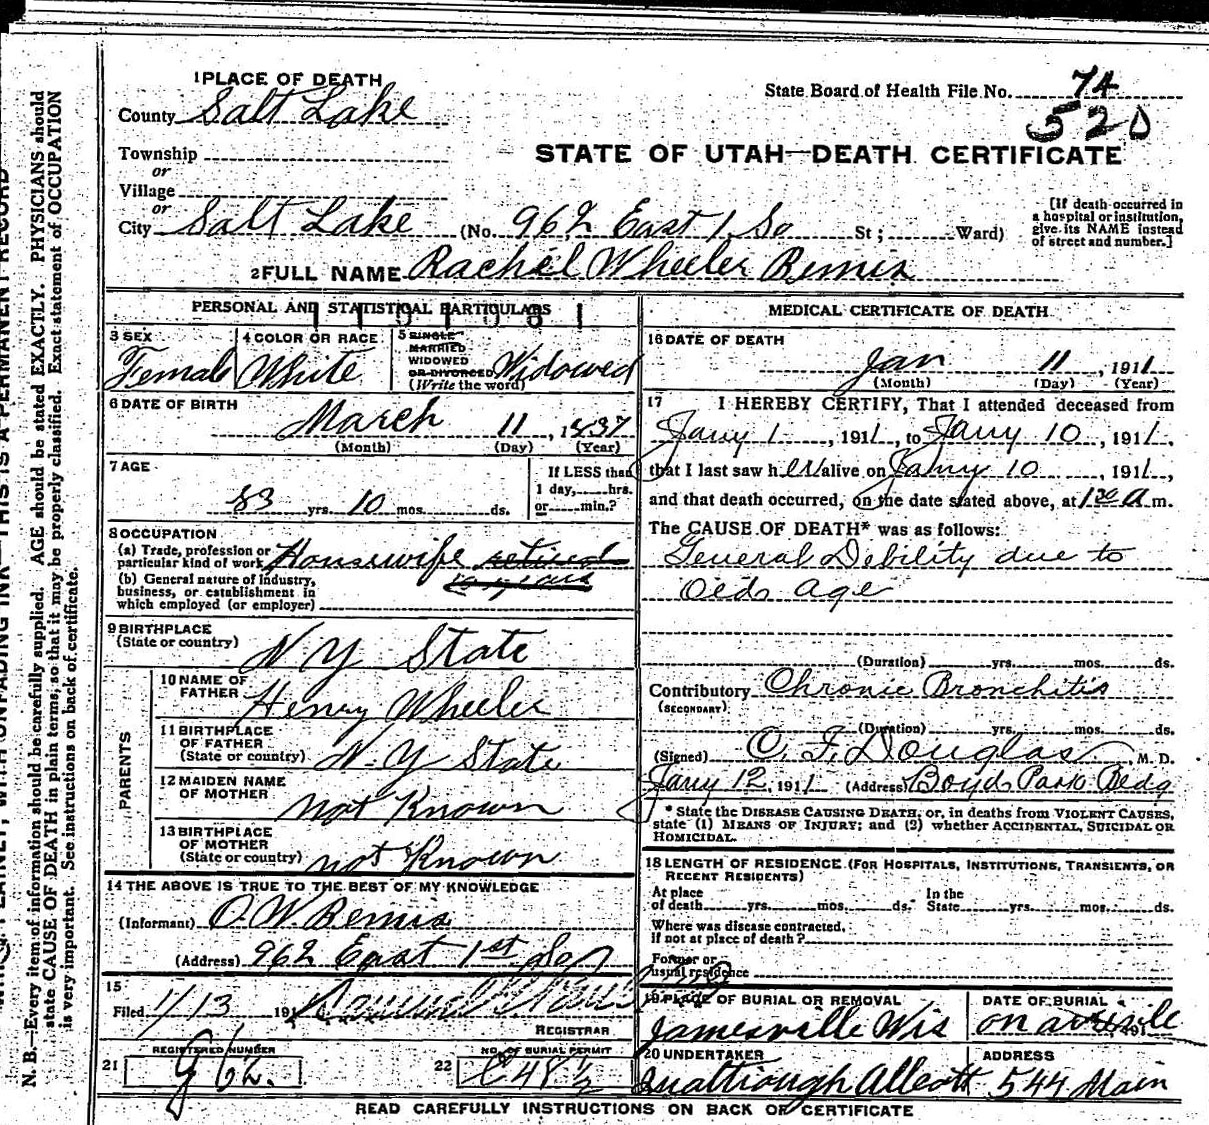 1 PLACE OF DEATH
County Salt Lake
State Board of Health File No. 74
520
Township
or
Village
or
STATE OF UTAH—DEATH CERTIFICATE
City Salt Lake (No. 962 East 1 So St; Ward)
[If death occurred in a hospital or institution, give its NAME instead of street and number.]
2 FULL NAME Rachel Wheeler Bemis
PERSONAL AND STATISTICAL PARTICULARS
3 SEX
Female
4 COLOR OR RACE
White
5 SINGLE
MARRIED
WIDOWED
OR DIVORCED
(Write the word)
Widowed
6 DATE OF BIRTH
March 11, 1837
(Month) (Day) (Year)
7 AGE
83 yrs. 10 mos. ds.
If LESS than
1 day, hrs.
or min.?
8 OCCUPATION
(a) Trade, profession or
particular kind of work Housewife retired
(b) General nature of industry,
business, or establishment in
which employed (or employer)
9 BIRTHPLACE
(State or country) N Y State
PARENTS
10 NAME OF
FATHER Henry Wheeler
11 BIRTHPLACE
OF FATHER
(State or country) N. Y State
12 MAIDEN NAME
OF MOTHER not Known
13 BIRTHPLACE
OF MOTHER
(State or country) not Known
14 THE ABOVE IS TRUE TO THE BEST OF MY KNOWLEDGE
(Informant) O. W. Bemis
(Address) 962 East 1st So
15
Filed 1/13 191
REGISTRAR
21 REGISTERED NUMBER
G 62.
22 NO. OF BURIAL PERMIT
MEDICAL CERTIFICATE OF DEATH
16 DATE OF DEATH
Jan 11, 1911
(Month) (Day) (Year)
17 I HEREBY CERTIFY, That I attended deceased from
Jany 1, 1911, to Jany 10, 1911,
that I last saw her alive on Jany 10, 1911,
and that death occurred, on the date stated above, at 1 20 A m.
The CAUSE OF DEATH* was as follows:
General Debility due to
Old age
(Duration) yrs. mos. ds.
Contributory Chronic Bronchitis
(SECONDARY)
(Duration) yrs. mos. ds.
(Signed) C. F. Douglas, M. D.
Jany 12, 1911 (Address) Boyd Park Bldg
* State the DISEASE CAUSING DEATH; or, in deaths from VIOLENT CAUSES,
state (1) MEANS OF INJURY; and (2) whether ACCIDENTAL, SUICIDAL OR
HOMICIDAL.
18 LENGTH OF RESIDENCE (FOR HOSPITALS, INSTITUTIONS, TRANSIENTS, OR
RECENT RESIDENTS)
At place
of death yrs. mos. ds.
In the
State yrs. mos. ds.
Where was disease contracted,
if not at place of death?
Former or
usual residence
19 PLACE OF BURIAL OR REMOVAL
Jamesville Wis
DATE OF BURIAL
191
20 UNDERTAKER
ADDRESS
544 Main
READ CAREFULLY INSTRUCTIONS ON BACK OF CERTIFICATE
N. B.—Every item of information should be carefully supplied. AGE should be stated EXACTLY. PHYSICIANS should
state CAUSE OF DEATH in plain terms, so that it may be properly classified. Exact statement of OCCUPATION
is very important. See instructions on back of certificate.